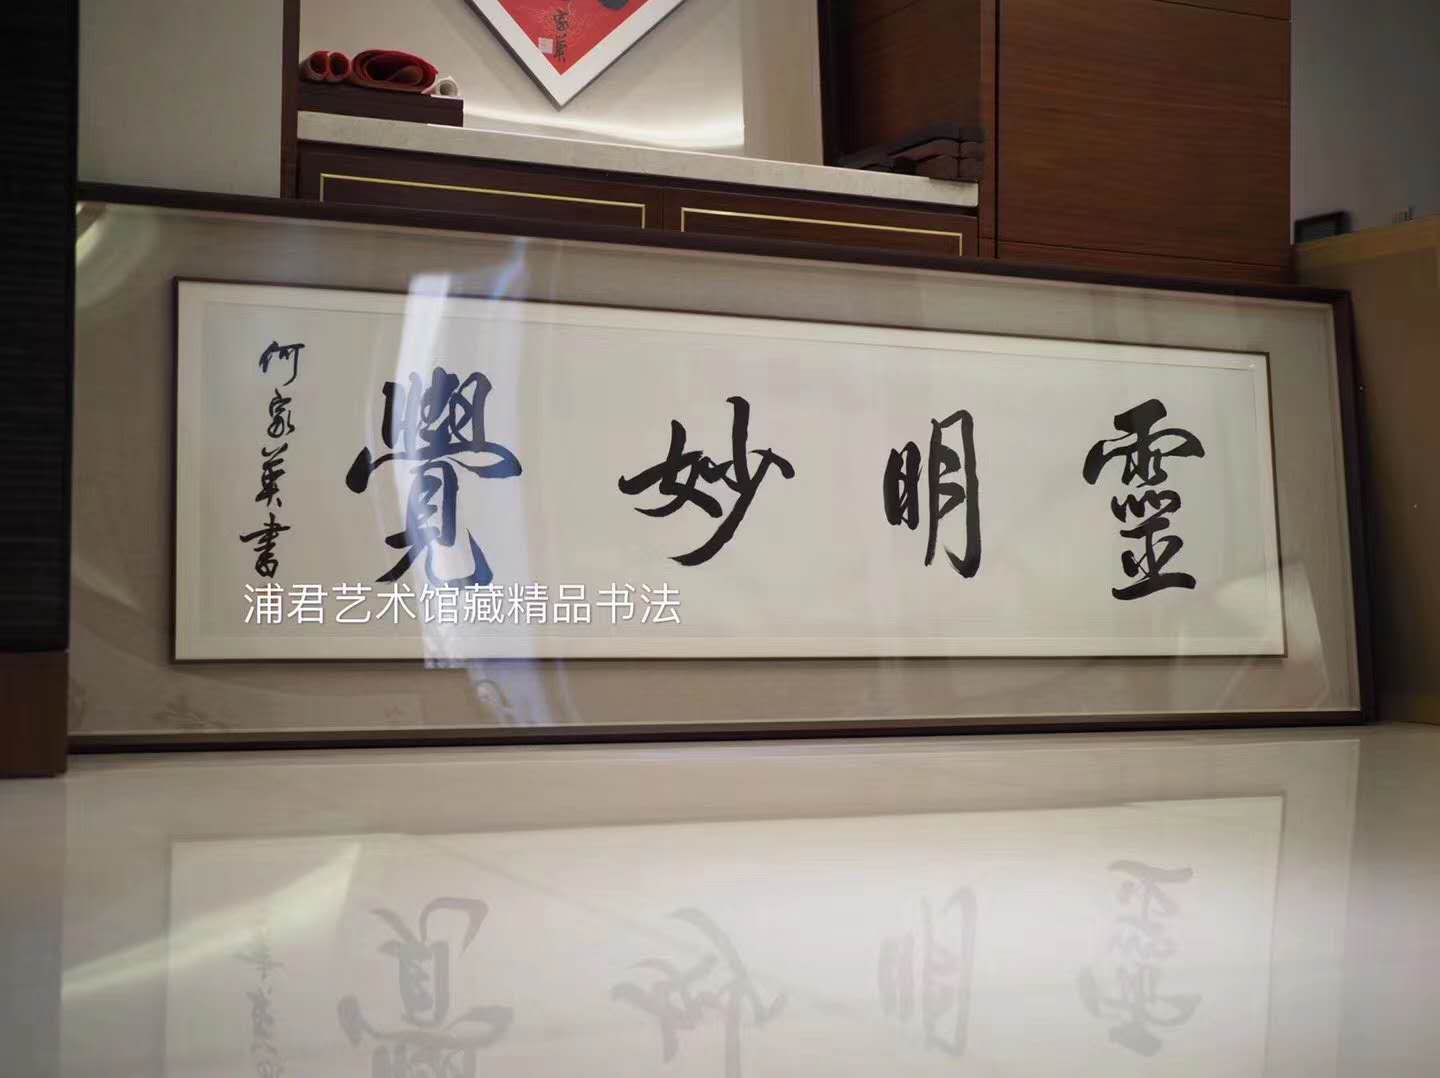 家英
靈明妙覺
何家英書
浦君艺术馆藏精品书法